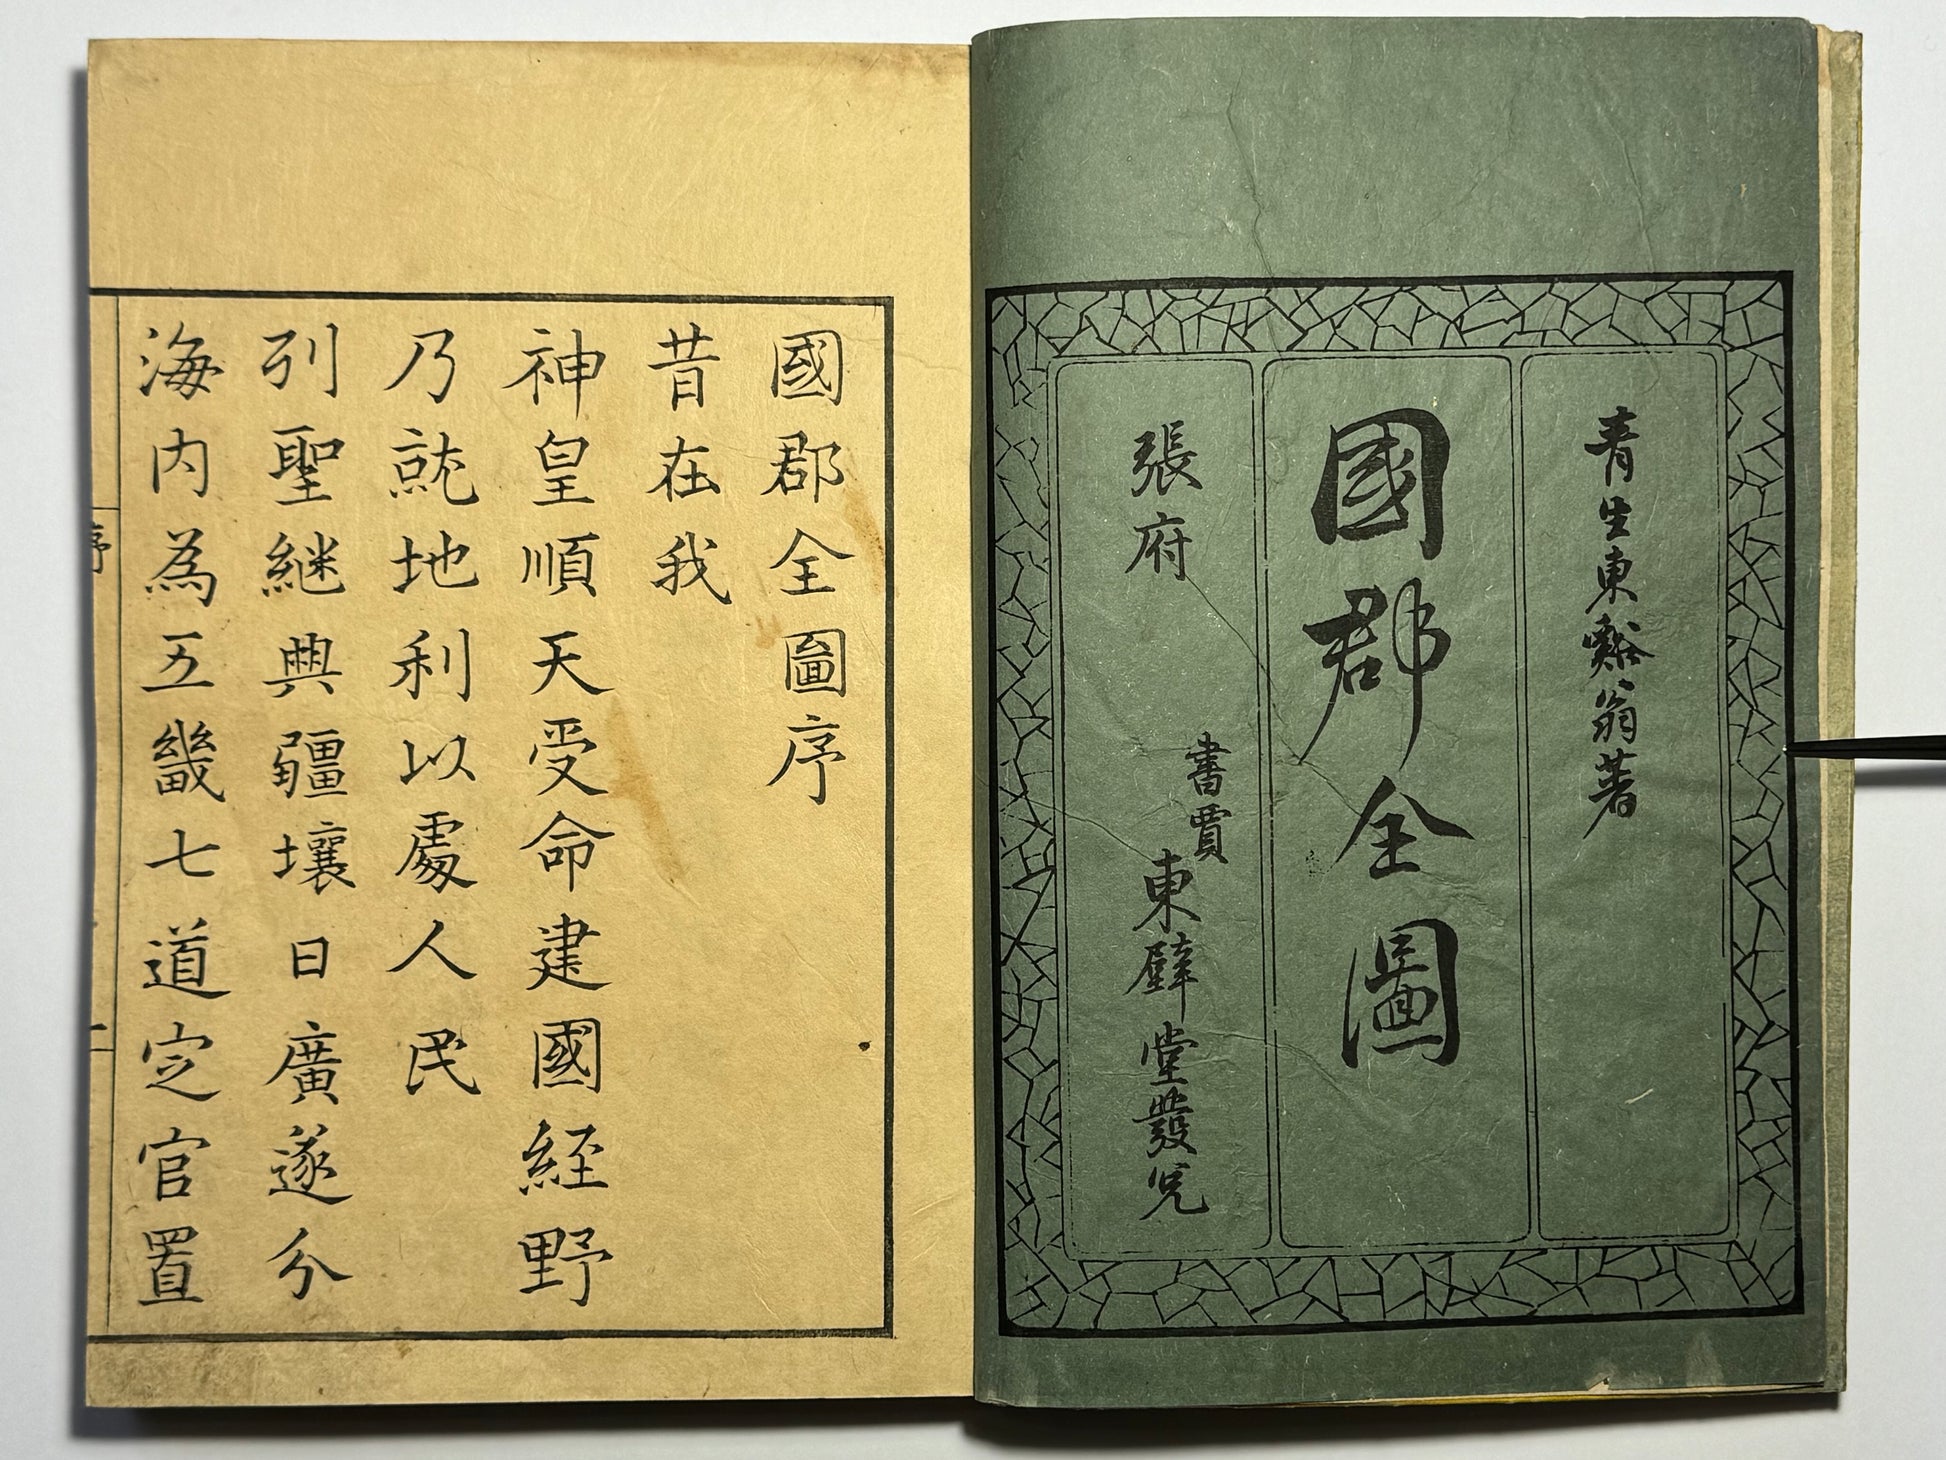 青生東谿翁著
國郡全圖
張府
書賈
東壁堂發兌
國郡全圖序
昔在我
神皇順天受命建國経野
乃就地利以處人民
列聖継興疆壤日廣遂分
海内為五畿七道定官置
序